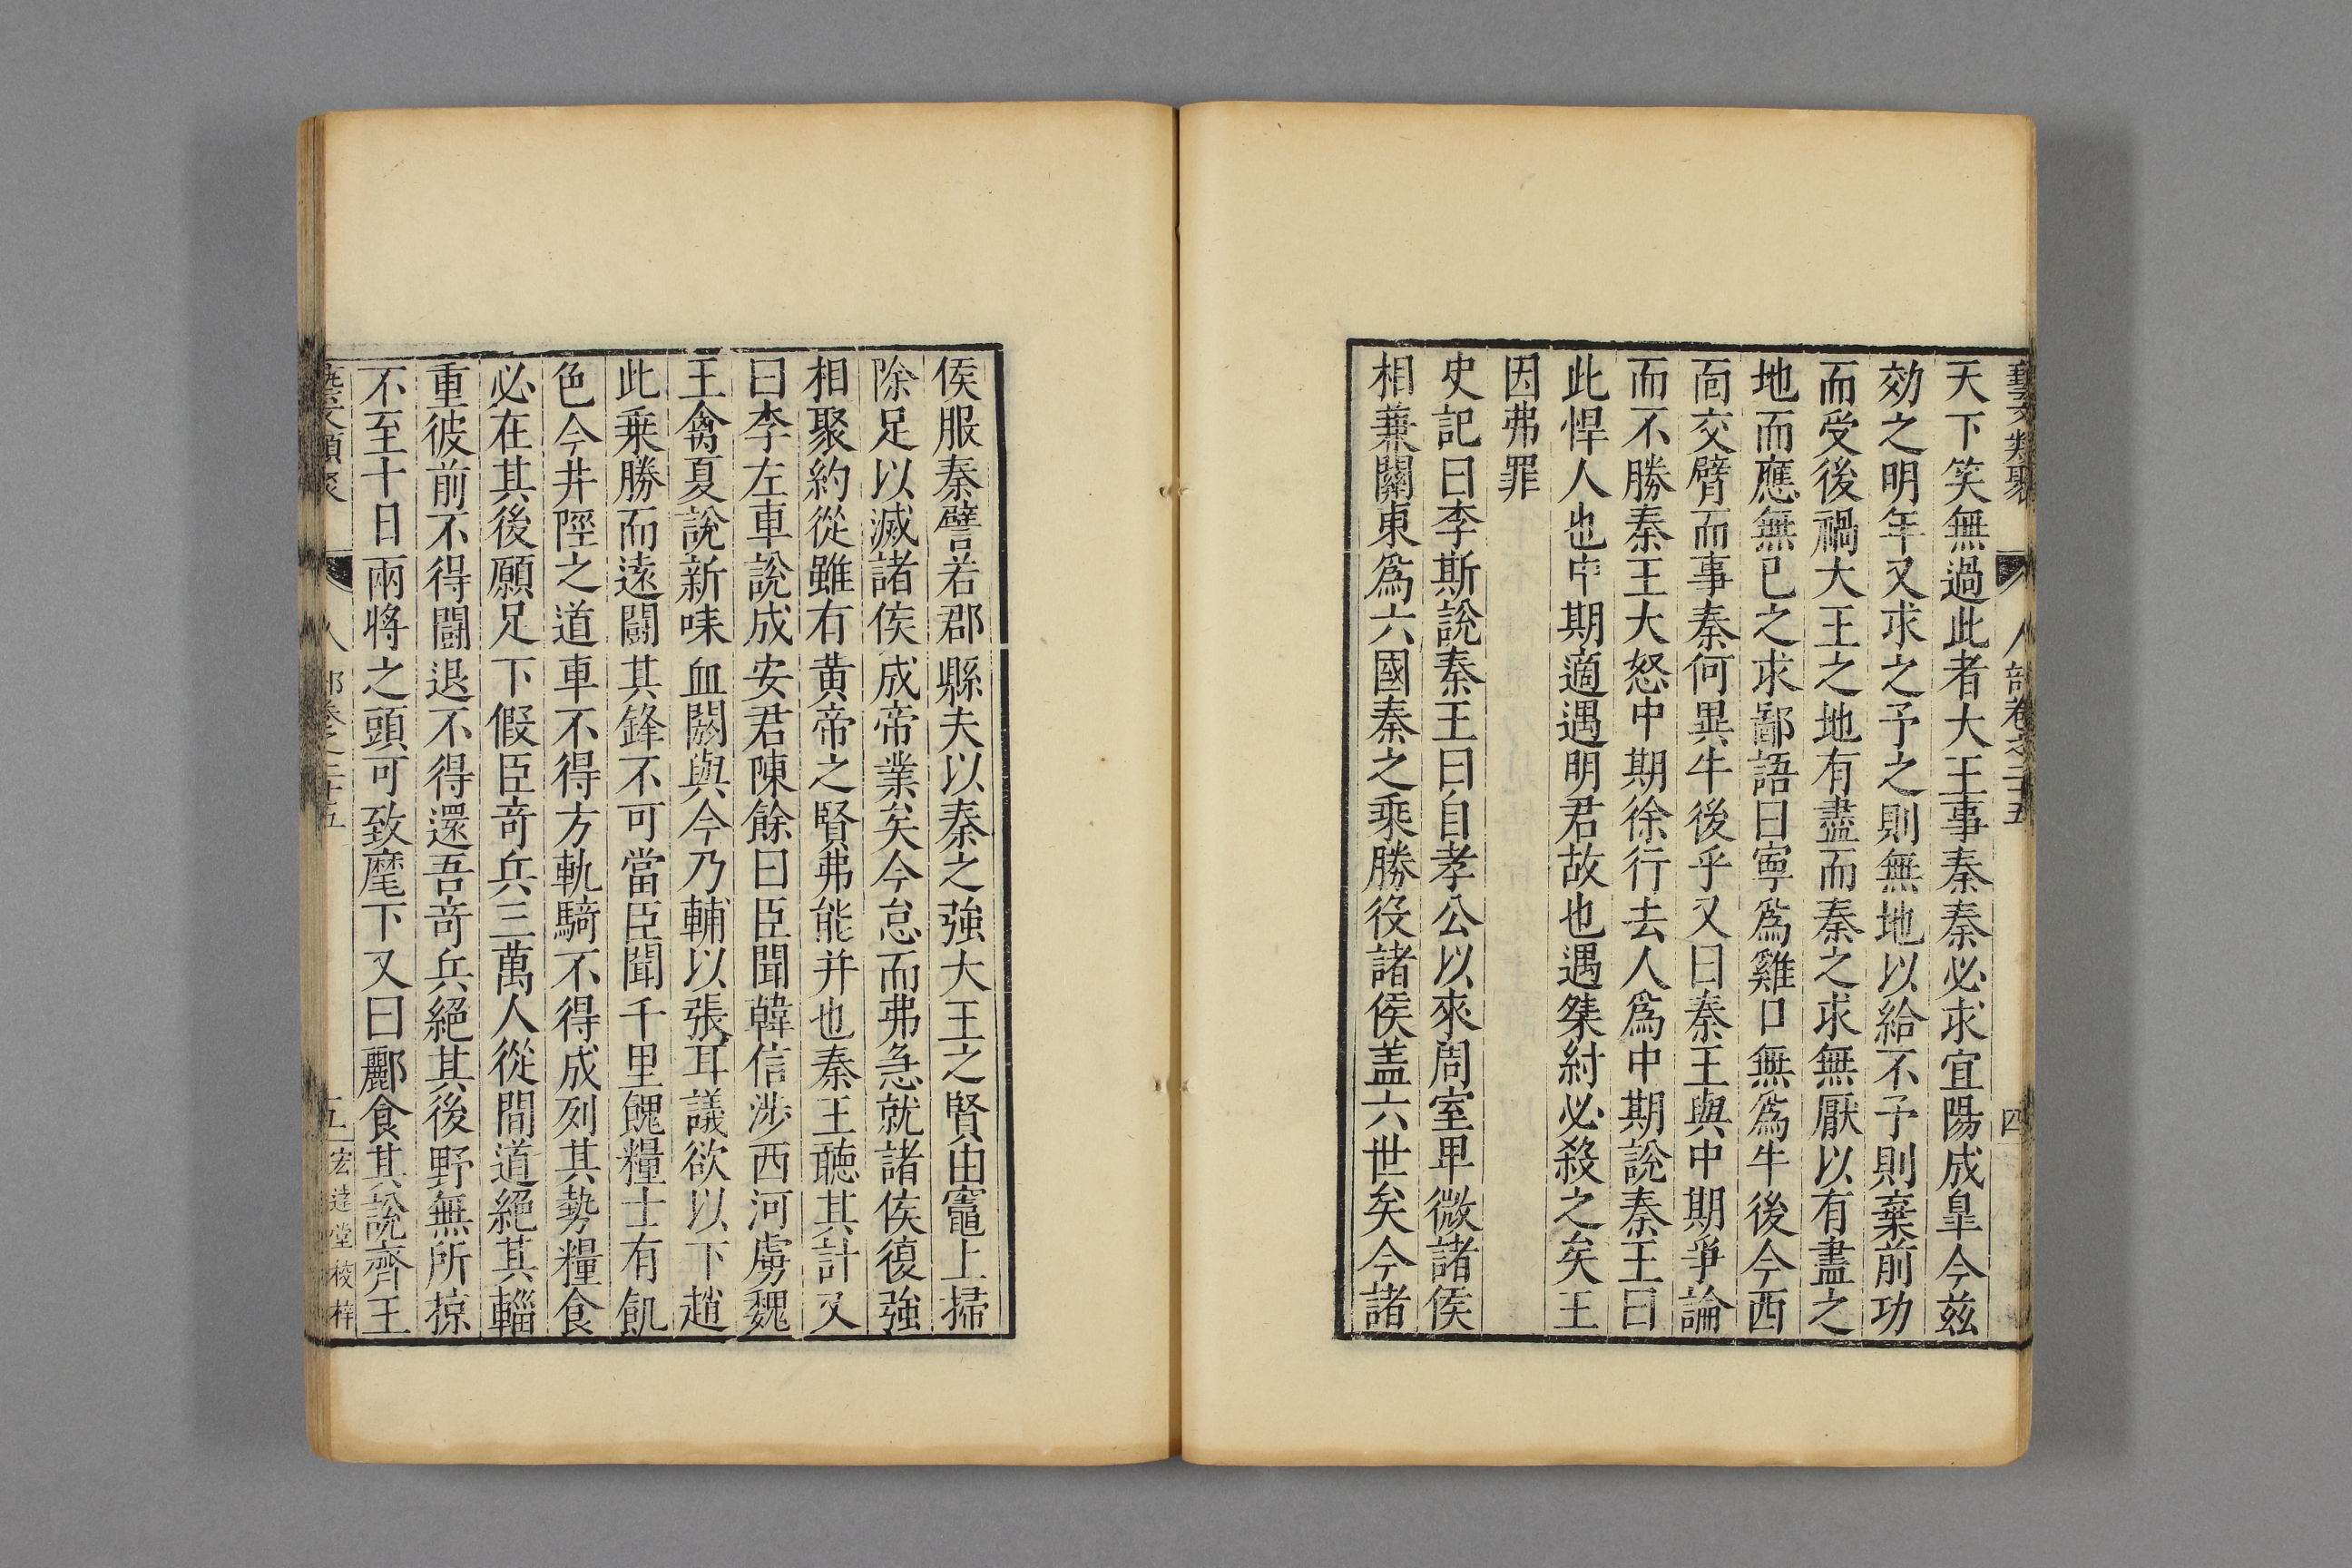 藝文類聚 人部卷之二十五 四
天下笑無過此者大王事秦秦必求宜陽成臯今兹
効之明年又求之予之則無地以給不予則棄前功
而受後禍大王之地有盡而秦之求無厭以有盡之
地而應無已之求鄙語曰寧爲雞口無爲牛後今西
面交臂而事秦何異牛後乎又曰秦王與中期爭論
而不勝秦王大怒中期徐行去人爲中期說秦王曰
此悍人也中期適遇明君故也遇桀紂必殺之矣王
因弗罪
史記曰李斯說秦王曰自孝公以來周室卑微諸侯
相兼關東爲六國秦之乘勝役諸侯盖六世矣今諸
侯服秦譬若郡縣夫以秦之強大王之賢由竈上掃
除足以滅諸侯成帝業矣今怠而弗急就諸侯復強
相聚約從雖有黄帝之賢弗能并也秦王聽其計又
曰李左車說成安君陳餘曰臣聞韓信涉西河虜魏
王禽夏說新喋血閼與今乃輔以張耳議欲以下趙
此乗勝而遠闘其鋒不可當臣聞千里餽糧士有飢
色今井陘之道車不得方軌騎不得成列其勢糧食
必在其後願足下假臣竒兵三萬人從間道絕其輜
重彼前不得闘退不得還吾竒兵絕其後野無所掠
不至十日兩將之頭可致麾下又曰酈食其說齊王
藝文類聚 人部卷之二十五 五 宏達堂校梓